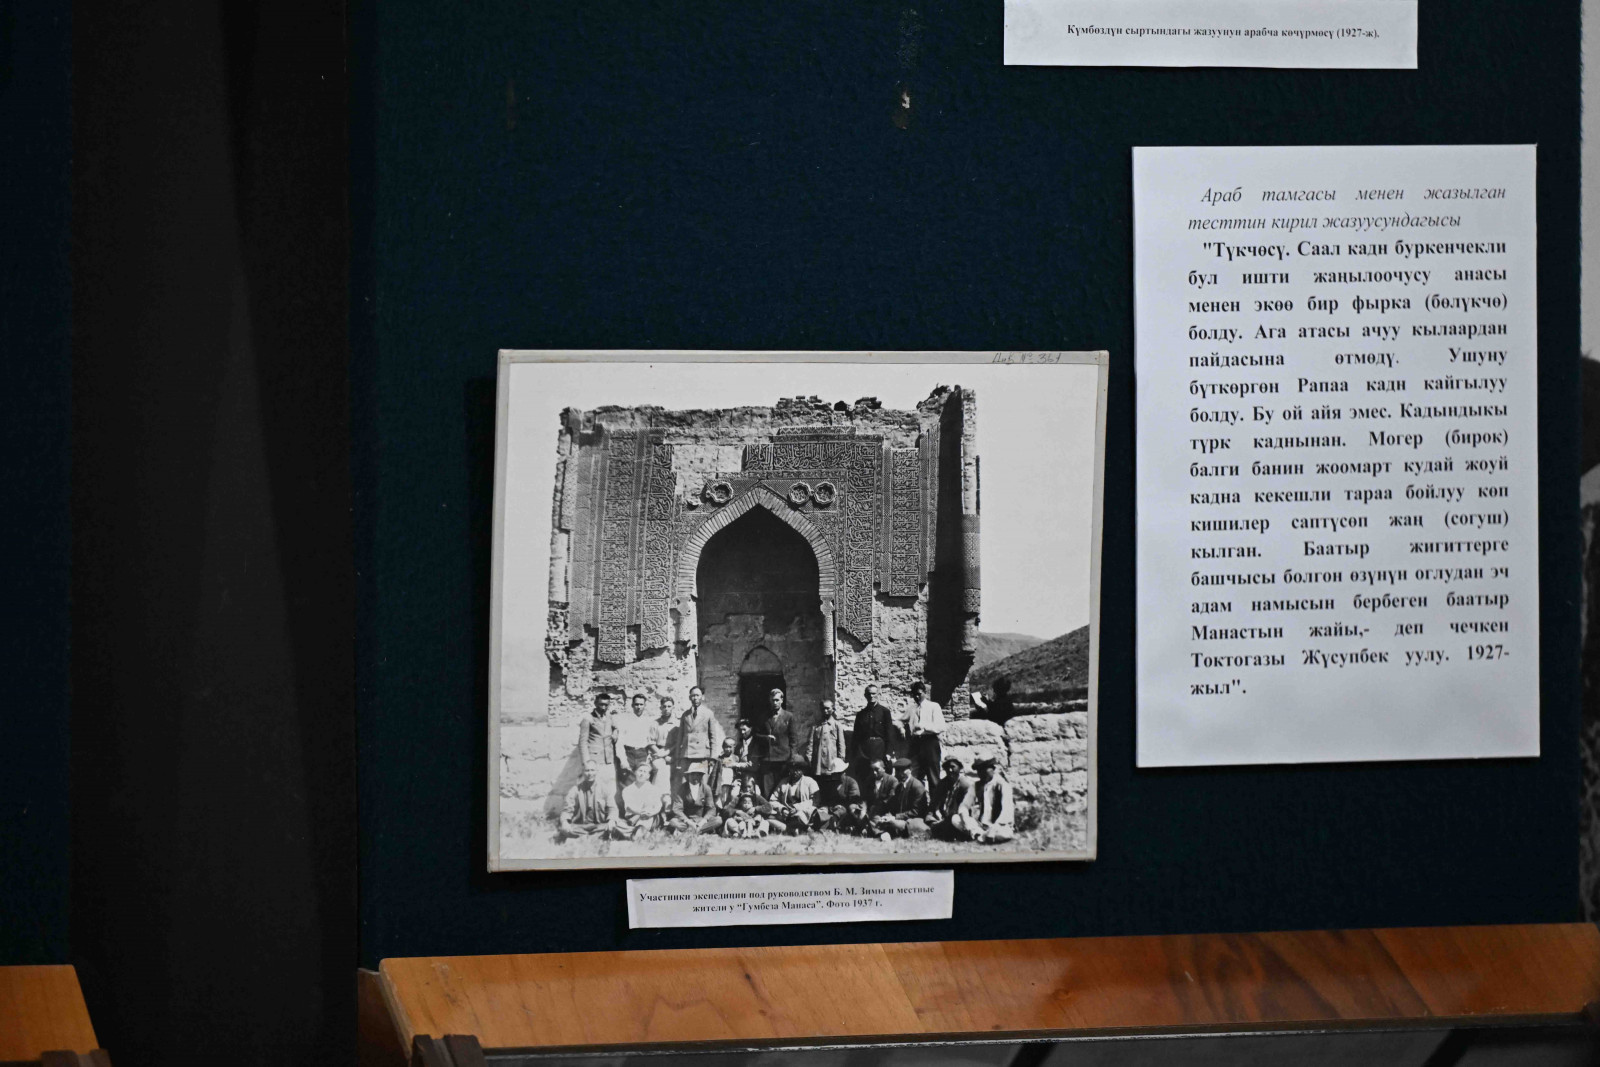 Күмбөздүн сыртындагы жазуунун арабча көчүрмөсү (1927-ж).
Араб тамгасы менен жазылган
тесттин кирил жазуусундагысы
"Түкчөсү. Саал кадн буркенчекли
бул ишти жаңылоочусу анасы
менен экөө бир фырка (бөлүкчө)
болду. Ага атасы ачуу кылаардан
пайдасына өтмөдү. Ушуну
бүткөргөн Рапаа кадн кайгылуу
болду. Бу ой айя эмес. Кадындыкы
түрк каднынан. Могер (бирок)
балги банин жоомарт кудай жоуй
кадна кекешли тараа бойлуу көп
кишилер саптүсөп жаң (согуш)
кылган. Баатыр жигиттерге
башчысы болгон өзүнүн оглудан эч
адам намысын бербеген баатыр
Манастын жайы,- деп чечкен
Токтогазы Жүсупбек уулу. 1927-
жыл".
Участники экспедиции под руководством Б. М. Зимы и местные
жители у "Гумбеза Манаса". Фото 1937 г.